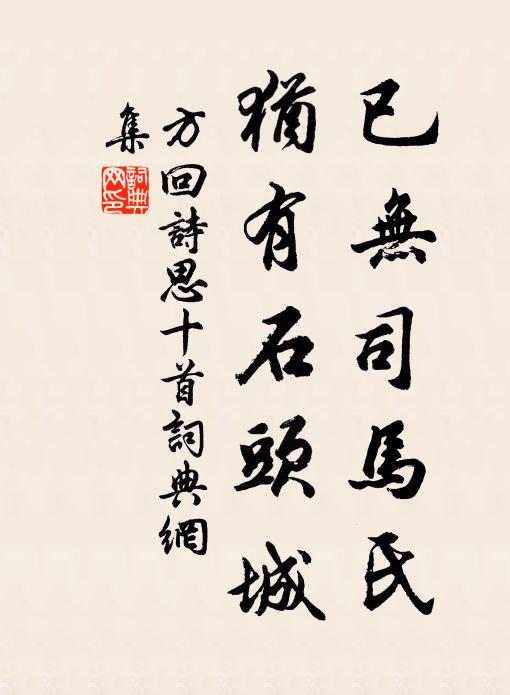 已無司馬氏
猶有石頭城
方回詩思十首詞典網
集
詞典網印